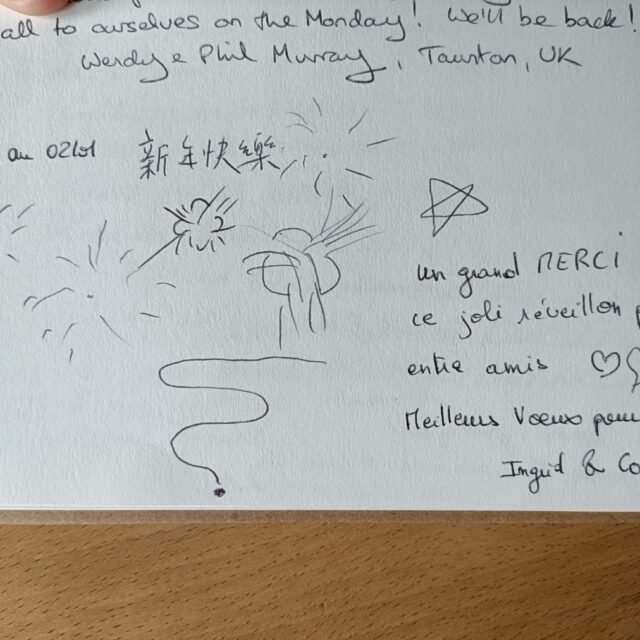 all to ourselves on the Monday! We'll be back!
Wendy & Phil Murray, Taunton, UK
au 02/01
新年快樂
un grand MERCI
ce joli réveillon
entre amis
Meilleurs Voeux pour
Ingrid & Co